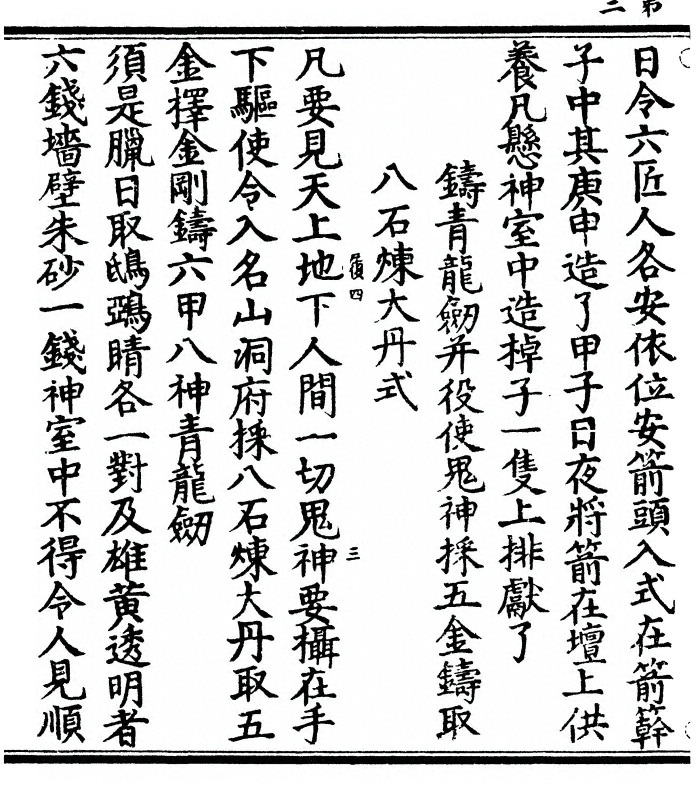 第二
日令六匠人各安依位安箭頭入式在箭簳
子中其庚申造了甲子日夜將箭在壇上供
養凡懸神室中造掉子一隻上排獻了
鑄青龍劒并役使鬼神採五金鑄取
八石煉大丹式
凡要見天上地下人間一切鬼神要攝在手
復四
三
下驅使令入名山洞府採八石煉大丹取五
金擇金剛鑄六甲八神青龍劒
須是臘日取鴟鵶睛各一對及雄黃透明者
六錢墻壁朱砂一錢神室中不得令人見順